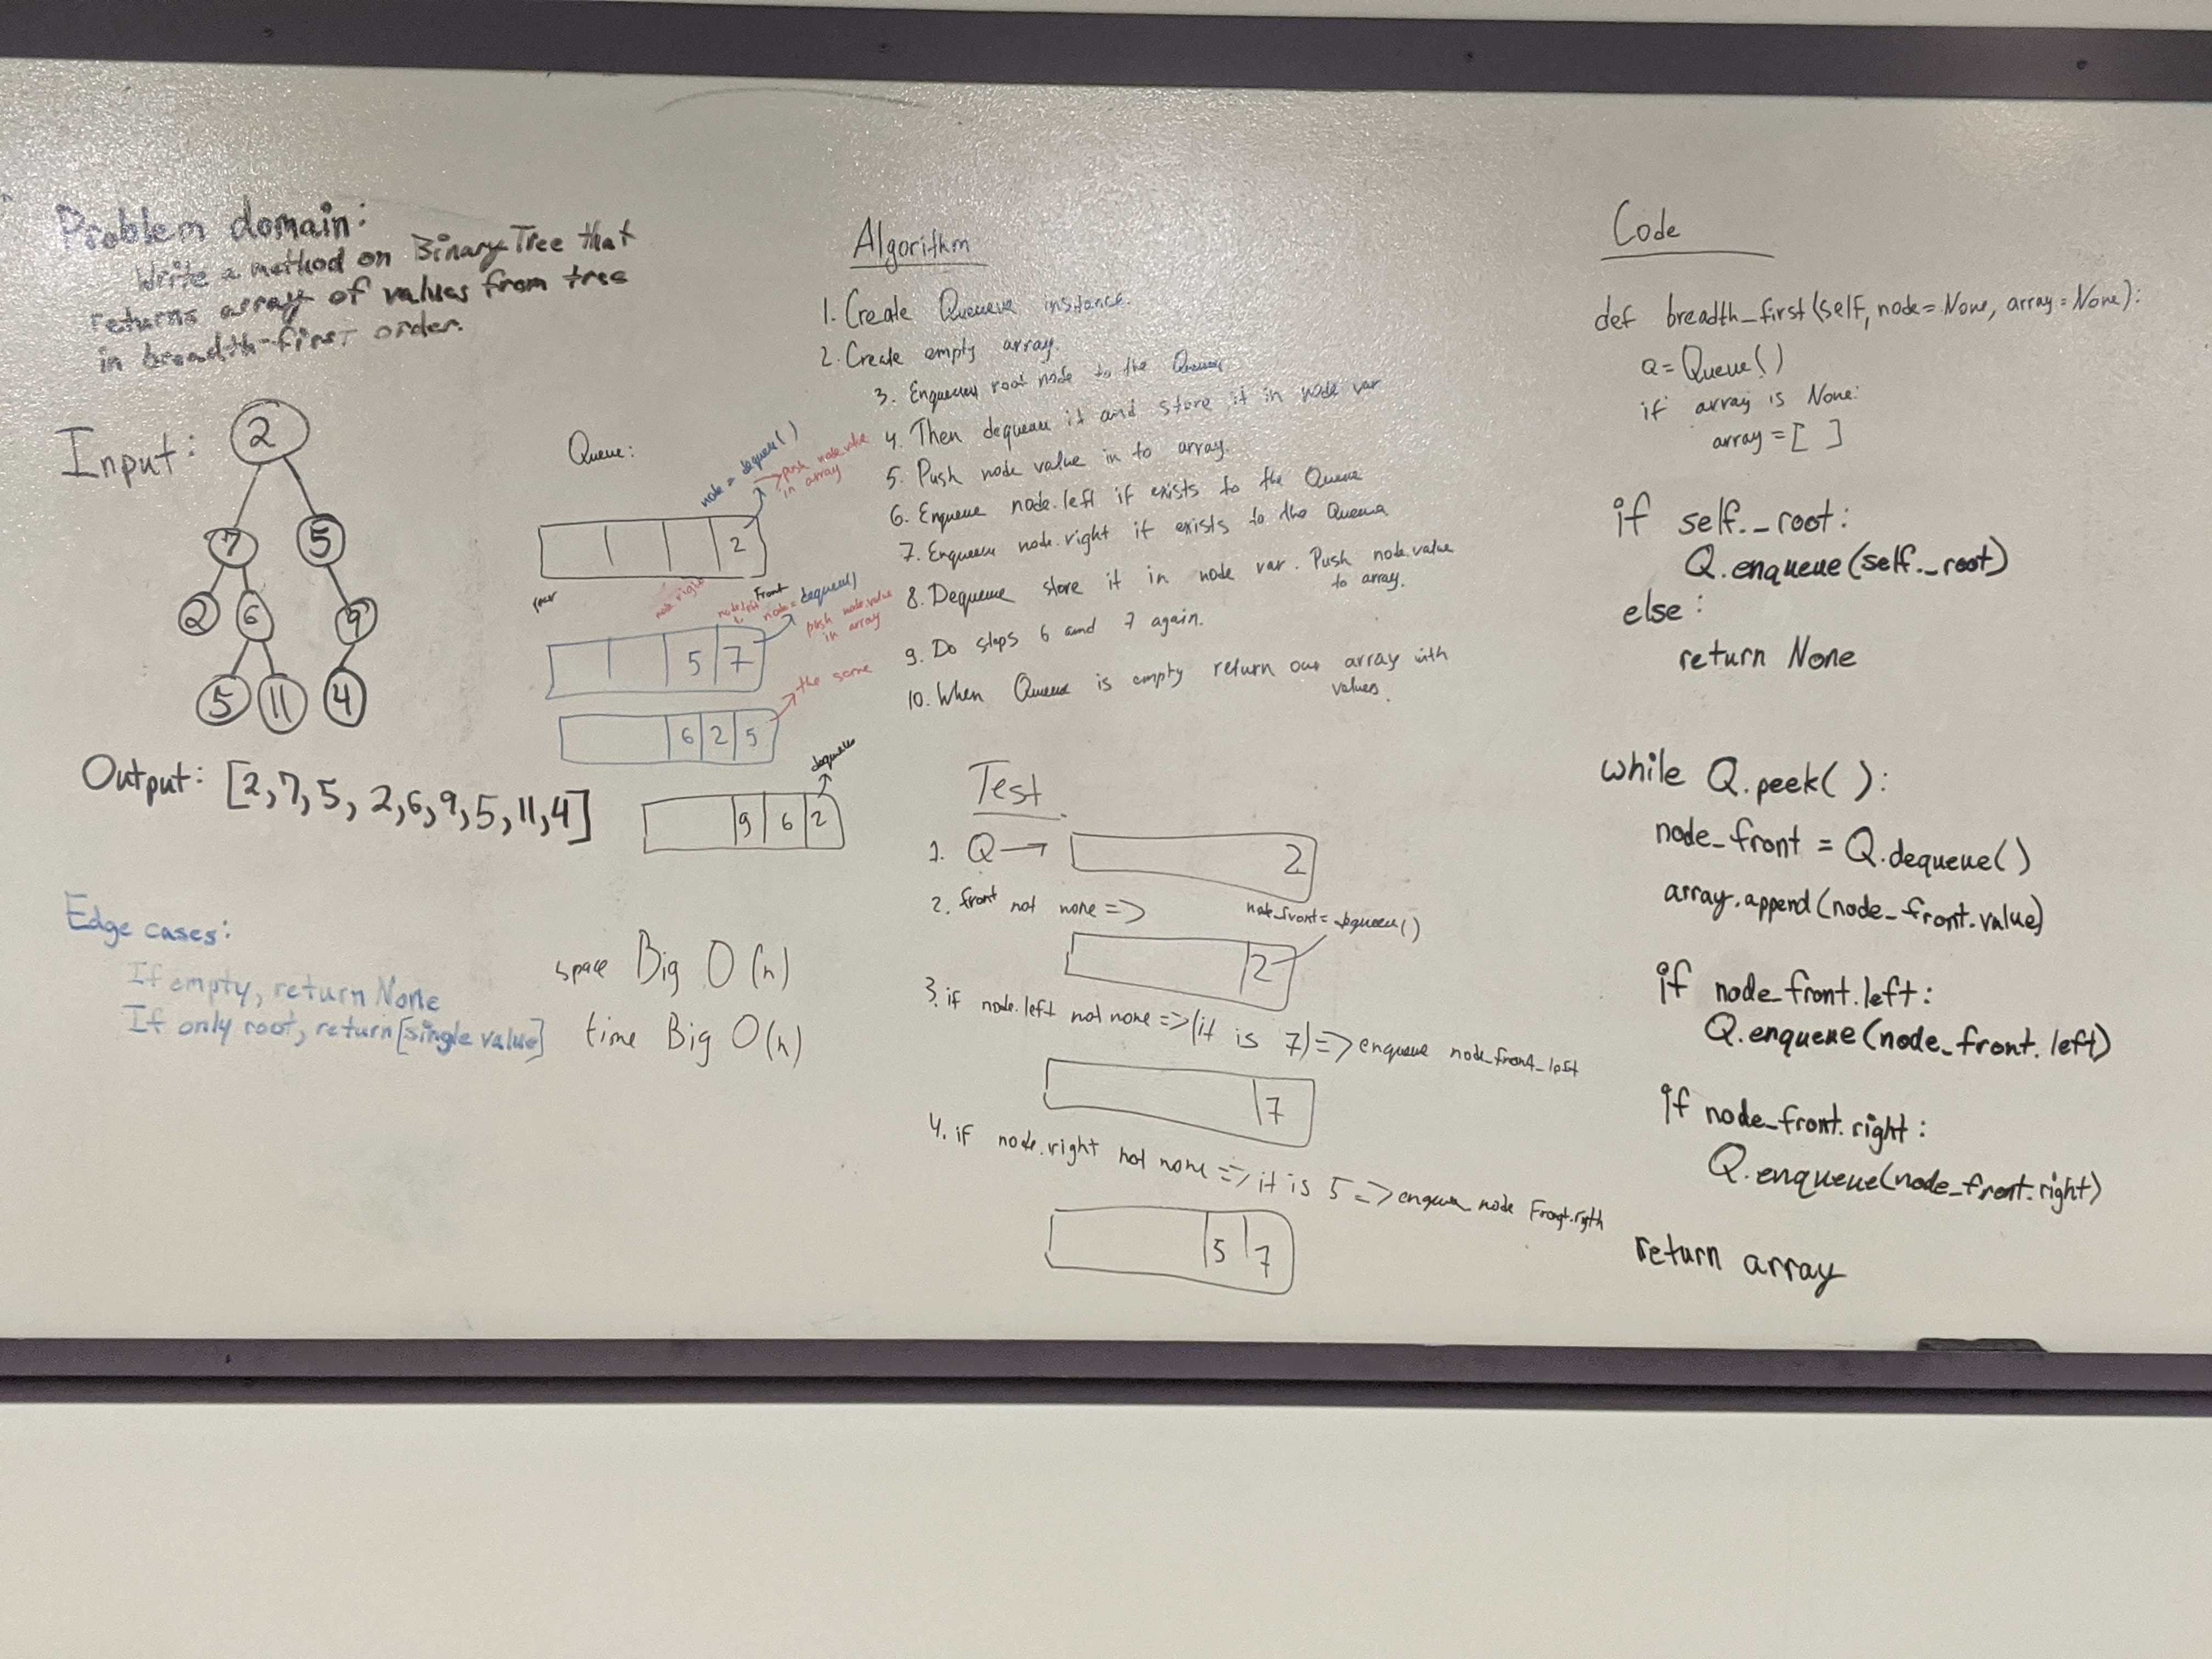 Problem domain:
Write a method on Binary Tree that
returns array of values from tree
in breadth-first order.
Input:
2
7 5
2 6 9
5 11 4
Output: [2,7,5, 2,6,9,5,11,4]
Edge cases:
If empty, return None
If only root, return [single value]
Queue:
node = dequeue()
push node.value
in array
2
rear
Front
node.right
node.left
node = dequeue()
push node.value
in array
5 7
the same
6 2 5
dequeue
9 6 2
space Big O(n)
time Big O(n)
Algorithm
1. Create Queueue instance.
2. Create empty array.
3. Enqueueu root node to the Queue
4. Then dequeue it and store it in node var
5. Push node value in to array.
6. Enqueue node.left if exists to the Queue
7. Enqueue node.right if exists to the Queue
8. Dequeue store it in node var. Push node.value
to array.
9. Do steps 6 and 7 again.
10. When Queue is empty return our array with
values.
Test
1. Q → 2
2. front not none =>
node_front = dequeue()
2
3. if node.left not none => (it is 7) => enqueue node_front_left
7
4. if node.right not none => it is 5 => enqueue node Front.rigth
5 7
Code
def breadth_first(self, node=None, array=None):
Q = Queue()
if array is None:
array = [ ]
if self._root:
Q.enqueue(self._root)
else:
return None
while Q.peek( ):
node_front = Q.dequeue()
array.append(node_front.value)
if node_front.left:
Q.enqueue(node_front.left)
if node_front.right:
Q.enqueue(node_front.right)
return array